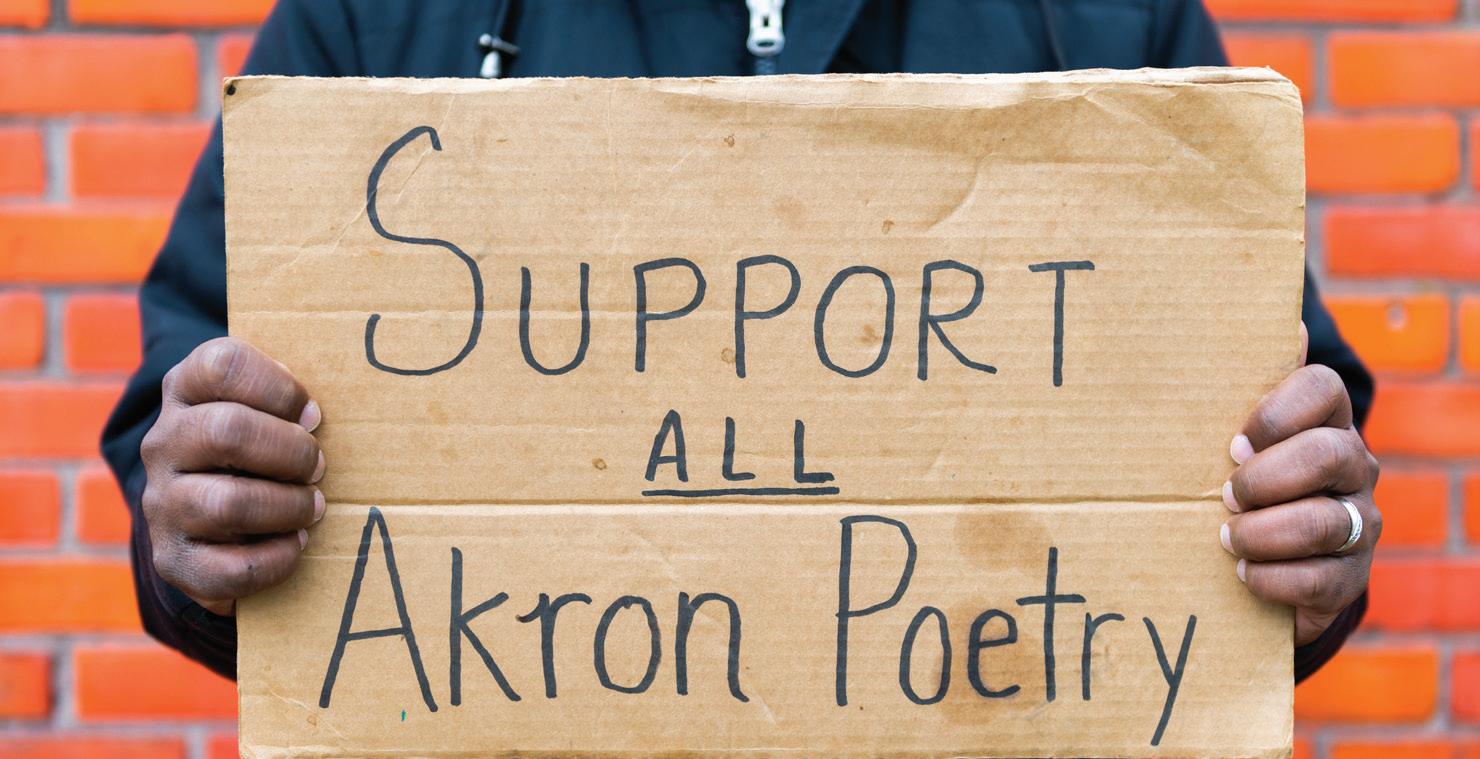 SUPPORT
ALL
Akron Poetry